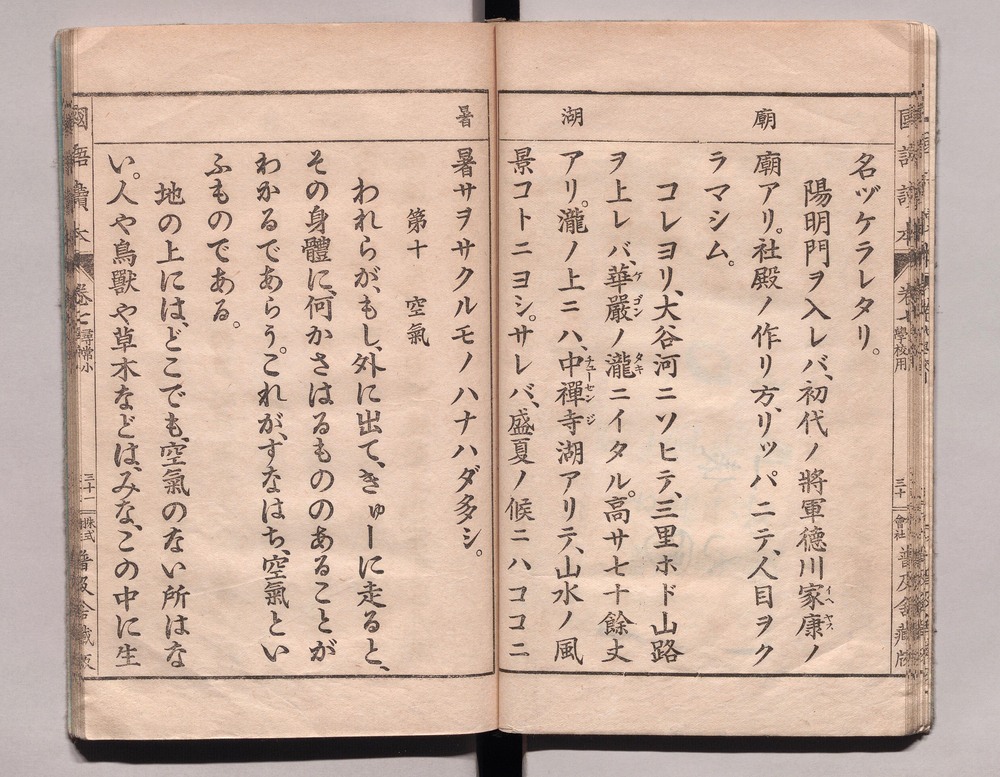 廟
湖
名ヅケラレタリ。
陽明門ヲ入レバ、初代ノ將軍徳川家康ノ
イヘヤス
廟アリ。社殿ノ作リ方、リッパニテ、人目ヲク
ラマシム。
コレヨリ、大谷河ニソヒテ、三里ホド山路
ヲ上レバ、華嚴ノ瀧ニイタル。高サ七十餘丈
ケゴン
タキ
アリ。瀧ノ上ニハ、中禪寺湖アリテ、山水ノ風
チューセンジ
景コトニヨシ。サレバ、盛夏ノ候ニハココニ
暑
暑サヲサクルモノハナハダ多シ。
第十 空氣
われらが、もし、外に出て、きゅーに走ると、
その身體に、何かさはるもののあることが
わかるであらう。これが、すなはち、空氣とい
ふものである。
地の上には、どこでも、空氣のない所はな
い。人や鳥獸や草木などは、みな、この中に生
國語讀本
卷七
尋常小
三十一
株式
普及舍藏版
國語讀本
卷七
學校用
三十
會社
普及舍藏版